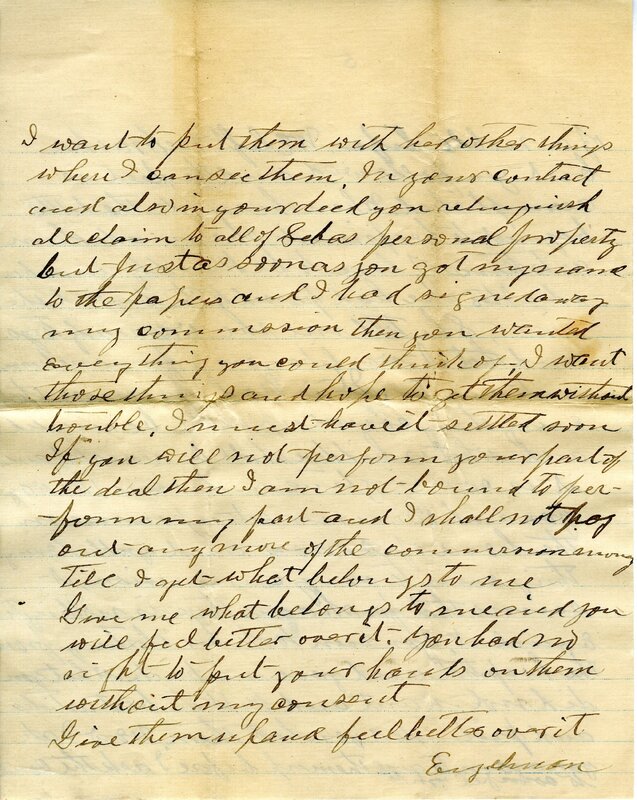 I want to put them with her other things
when I can see them. In your contract
and also in your deed you relinquish
all claim to all of Sebas personal property
but just as soon as you got my name
to the papers and I had signed away
my commission then you wanted
everything you could think of, I want
those things and hope to get them without
trouble. I must have it settled soon
If you will not perform your part of
the deal then I am not bound to per-
form my part and I shall not pay
out any more of the commission money
till I get what belongs to me
Give me what belongs to me and you
will feel better over it. You had no
right to put your hands on them
without my consent
Give them up and feel better over it